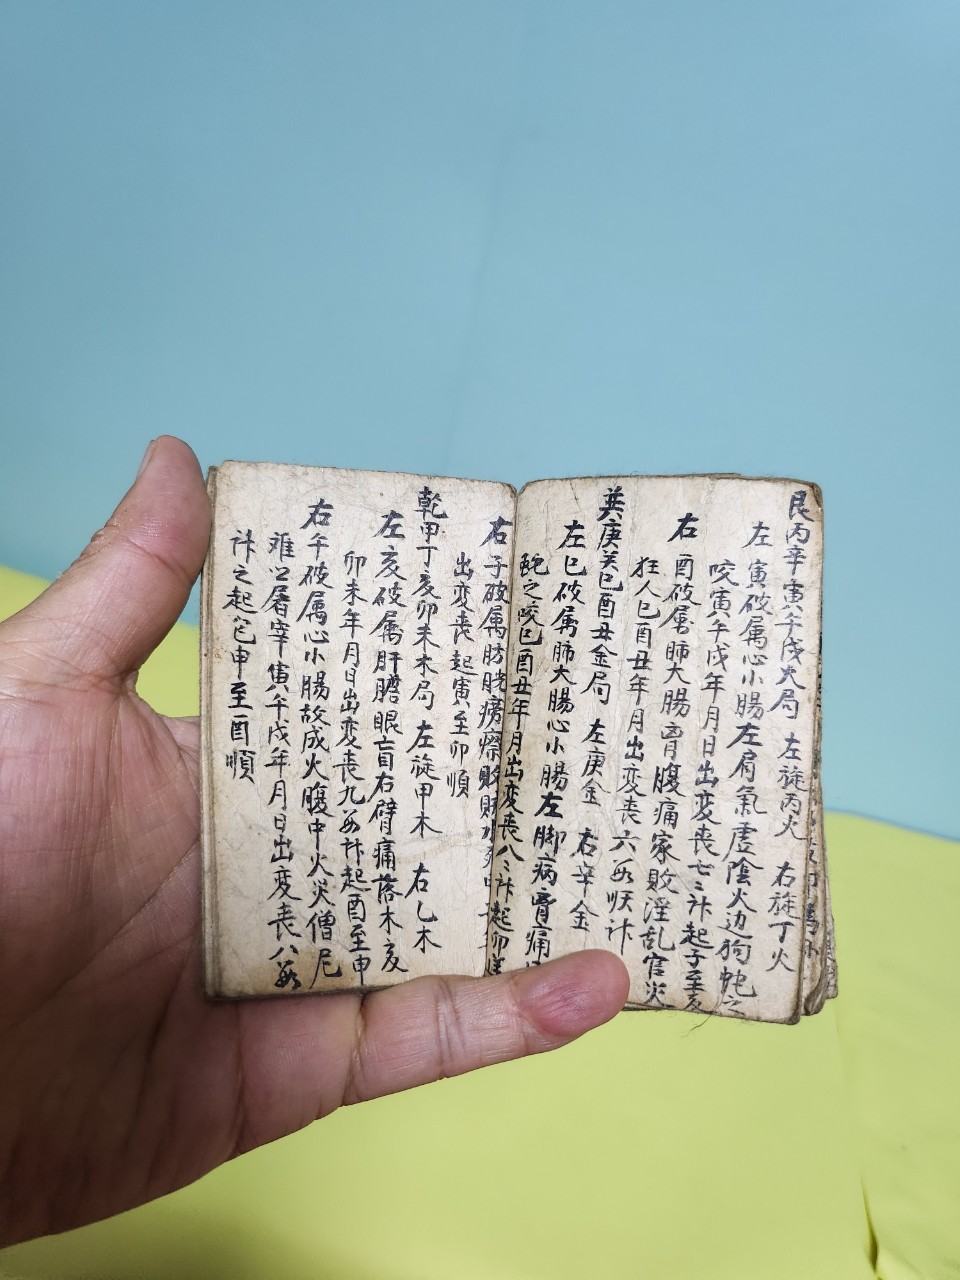 艮丙辛寅午戌火局 左旋丙火 右旋丁火
左 寅破属心小腸左肩氣虛陰火边狗蛇之
咬寅午戌年月日出変丧七〻计起子至亥
右 酉破属肺大腸胃腹痛家敗淫乱官災
狂人巳酉丑年月出変丧六 计
巳酉丑金局 左庚金 右辛金
左巳破属肺大腸心小腸左脚病胃痛
蛇之咬巳酉丑年月出変丧八〻计起卯
右子破属膀胱痨瘵敗
出変丧起寅至卯順
乾甲丁亥卯未木局 左旋甲木 右乙木
左亥破属肝膽眼盲右臂痛落木亥
卯未年月日出変丧九 计起酉至申
右午破属心小腸故成火腹中火災僧尼
难公屠宰寅午戌年月日出変丧八
计之起 申至酉順